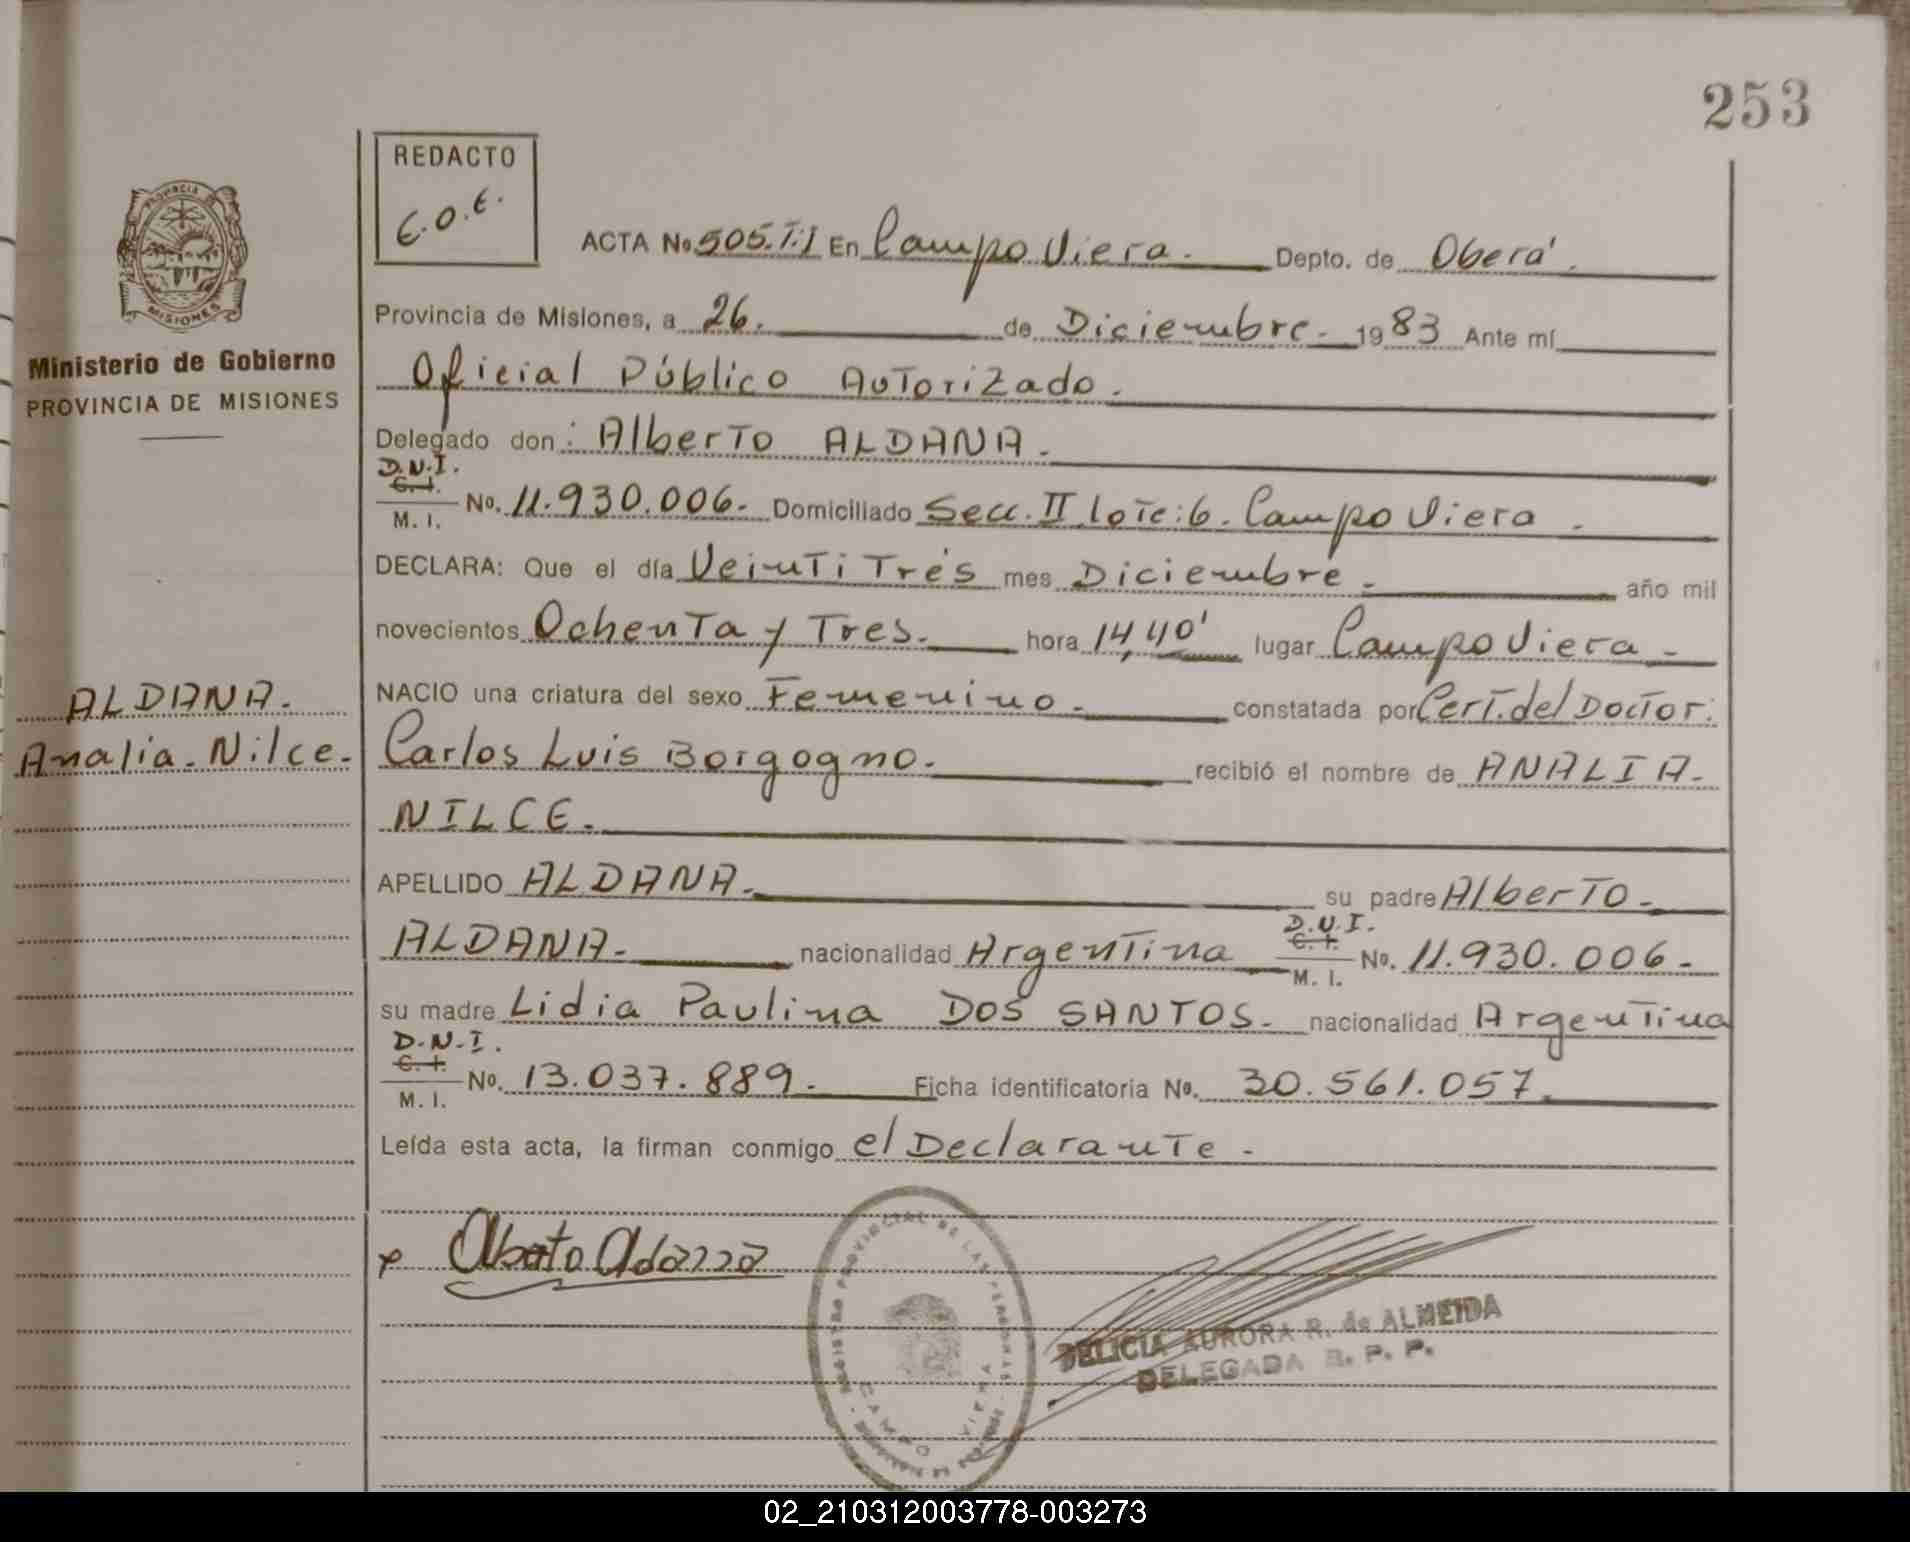 253
REDACTO
E.O.E.
PROVINCIA DE
MISIONES
Ministerio de Gobierno
PROVINCIA DE MISIONES
ACTA No 505.T.I En Campo Viera. Depto. de Oberá.
Provincia de Misiones, a 26. de Diciembre. 1983 Ante mí
Oficial Público Autorizado.
Delegado don: Alberto ALDANA.
D.N.I.
C. I.
M. I. No. 11.930.006. Domiciliado Secc. II lote: 6. Campo Viera.
DECLARA: Que el día Veinti Trés mes Diciembre. año mil
novecientos Ochenta y Tres. hora 14,40' lugar Campo Viera.
NACIO una criatura del sexo Femenino. constatada por Cert. del Doctor.
Carlos Luis Borgogno. recibió el nombre de ANALIA.
NILCE.
ALDANA.
Analia. Nilce.
APELLIDO ALDANA. su padre Alberto.
ALDANA. nacionalidad Argentina D.N.I. C. I. M. I. No. 11.930.006.
su madre Lidia Paulina DOS SANTOS. nacionalidad Argentina
D.N.I.
C. I.
M. I. No. 13.037.889. Ficha identificatoria No. 30.561.057.
Leída esta acta, la firman conmigo el Declarante.
x Alberto Aldana
REGISTRO PROVINCIAL DE LAS PERSONAS
CAMPO VIERA
DELICIA AURORA R. de ALMEIDA
DELEGADA R. P. P.
02_210312003778-003273